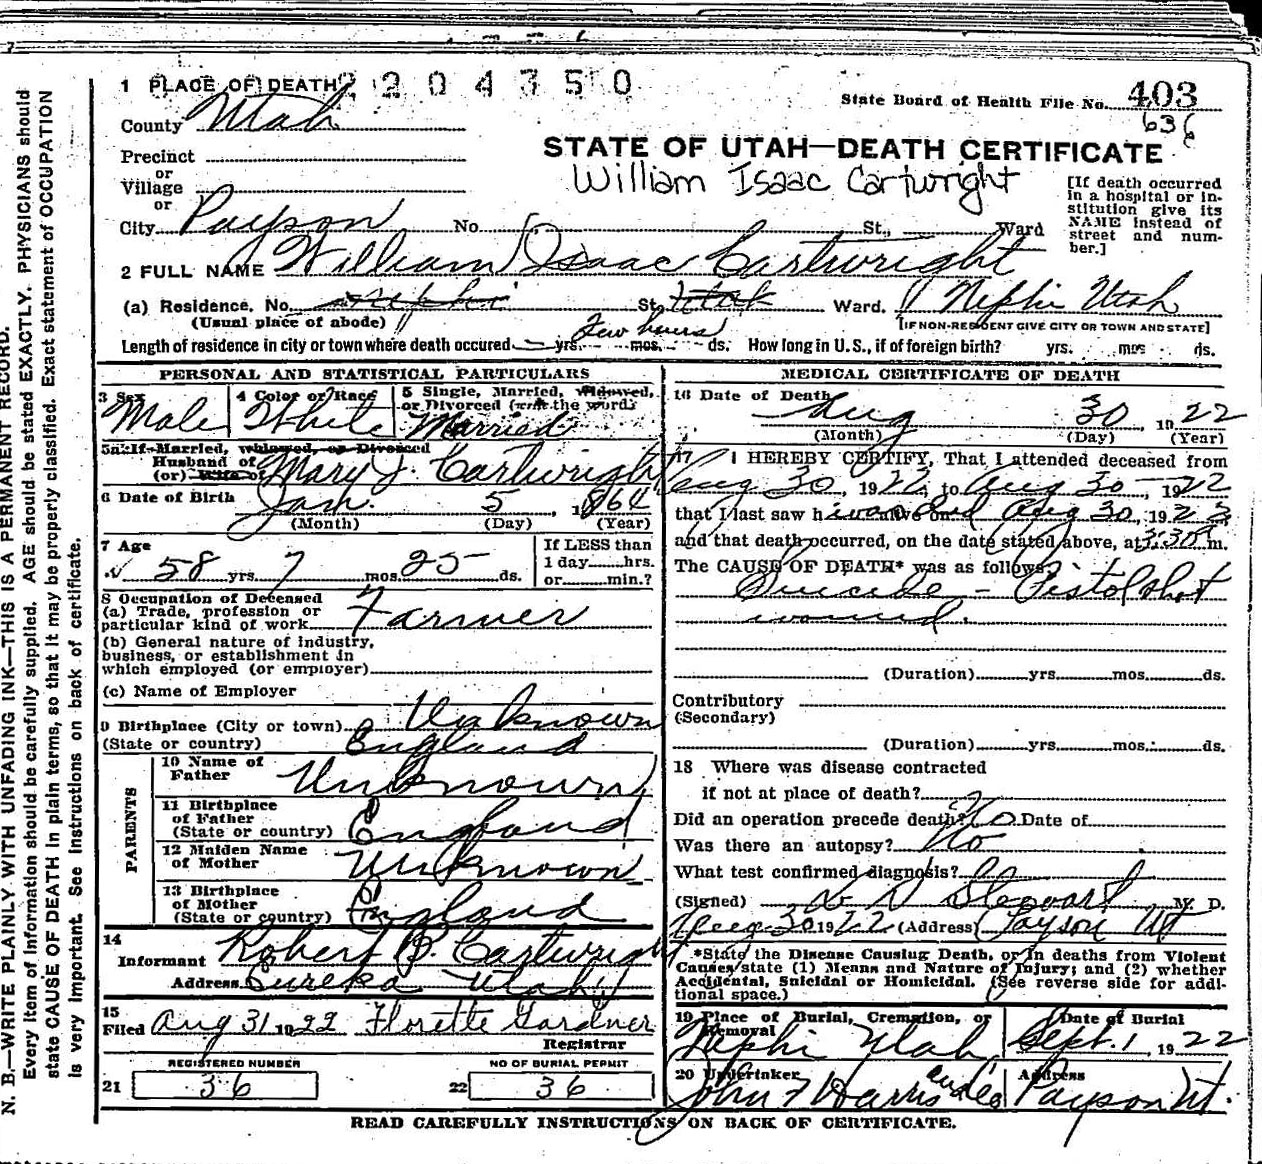 1 PLACE OF DEATH 2204350
State Board of Health File No. 403
636
County Utah
STATE OF UTAH—DEATH CERTIFICATE
Precinct
or
Village
or
William Isaac Cartwright
[If death occurred in a hospital or institution give its NAME instead of street and number.]
City Payson No. St., Ward
2 FULL NAME William Isaac Cartwright
(a) Residence. No. Nephi St. Utah Ward. Nephi Utah
(Usual place of abode) [IF NON-RESIDENT GIVE CITY OR TOWN AND STATE]
Few hours
Length of residence in city or town where death occured — yrs. mos. ds. How long in U.S., if of foreign birth? yrs. mos ds.
PERSONAL AND STATISTICAL PARTICULARS
3 Sex Male
4 Color or Race White
5 Single, Married, Widowed, or Divorced (write the word) Married
5a If Married, widowed, or Divorced
Husband of
(or) Wife of Mary J. Cartwright
6 Date of Birth Jan. 5, 1864
(Month) (Day) (Year)
7 Age 58 yrs. 7 mos. 25 ds.
If LESS than
1 day hrs.
or min.?
8 Occupation of Deceased
(a) Trade, profession or
particular kind of work Farmer
(b) General nature of industry,
business, or establishment in
which employed (or employer)
(c) Name of Employer
9 Birthplace (City or town) Unknown
(State or country) England
PARENTS
10 Name of
Father Unknown
11 Birthplace
of Father
(State or country) England
12 Maiden Name
of Mother Unknown
13 Birthplace
of Mother
(State or country) England
14
Informant Robert B. Cartwright
Address Eureka Utah
15
Filed Aug 31 1922 Florette Gardner
Registrar
REGISTERED NUMBER NO OF BURIAL PERMIT
21 36 22 36
MEDICAL CERTIFICATE OF DEATH
16 Date of Death Aug 30 1922
(Month) (Day) (Year)
17 I HEREBY CERTIFY, That I attended deceased from
Aug 30, 1922, to Aug 30, 1922
that I last saw h on Aug 30, 192
and that death occurred, on the date stated above, at 3:30 m.
The CAUSE OF DEATH* was as follows:
Suicide — Pistol shot
wound.
(Duration) yrs. mos. ds.
Contributory
(Secondary)
(Duration) yrs. mos. ds.
18 Where was disease contracted
if not at place of death?
Did an operation precede death? No Date of
Was there an autopsy? No
What test confirmed diagnosis?
(Signed) Stewart M. D.
Aug 30 1922 (Address) Payson Ut
*State the Disease Causing Death, or in deaths from Violent
Causes state (1) Menns and Nature of Injury; and (2) whether
Accidental, Suicidal or Homicidal. (See reverse side for addi-
tional space.)
19 Place of Burial, Cremation, or
Removal
Nephi Utah
Date of Burial
Sept. 1, 1922
20 Undertaker
John F Harris and Co
Address
Payson Ut.
READ CAREFULLY INSTRUCTIONS ON BACK OF CERTIFICATE.
N. B.—WRITE PLAINLY WITH UNFADING INK—THIS IS A PERMANENT RECORD.
Every item of information should be carefully supplied. AGE should be stated EXACTLY. PHYSICIANS should
state CAUSE OF DEATH in plain terms, so that it may be properly classified. Exact statement of OCCUPATION
is very important. See instructions on back of certificate.